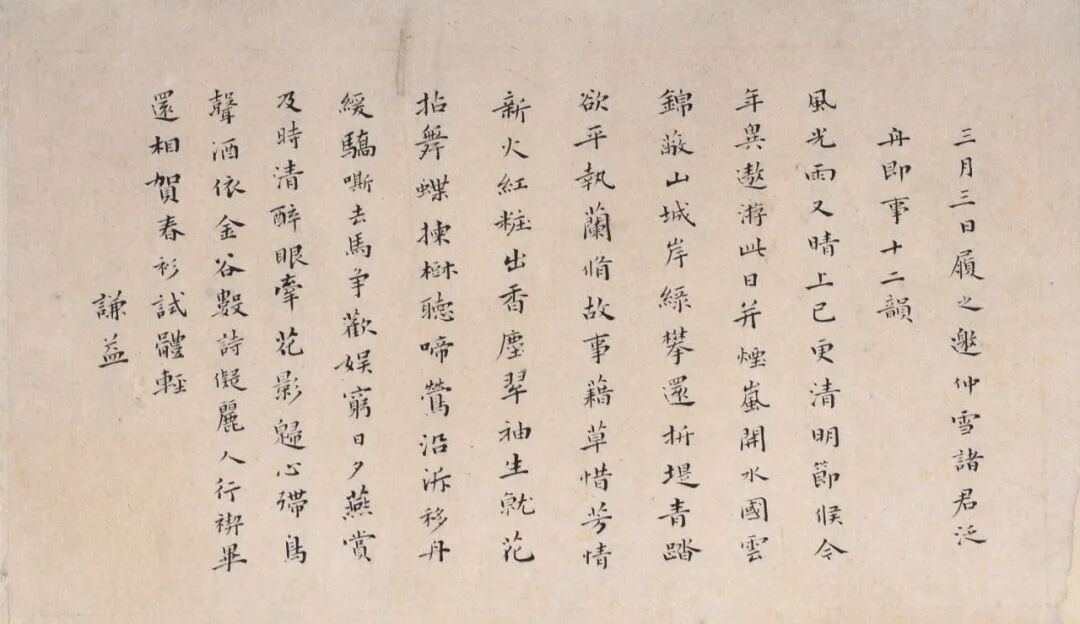 三月三日履之邀仲雪諸君泛
舟即事十二韻
風光雨又晴上巳更清明節候今
年異遨游此日并煙嵐開水國雲
錦蔽山城岸綠攀還折堤青踏
欲平執蘭脩故事藉草惜芳情
新火紅粧出香塵翠袖生就花
拈舞蝶揀樹聽啼鶯沿泝移舟
緩驕嘶去馬爭歡娱窮日夕燕賞
及時清醉眼牽花影歸心滯鳥
聲酒依金谷數詩儗麗人行禊畢
還相賀春衫試體輕
謙益